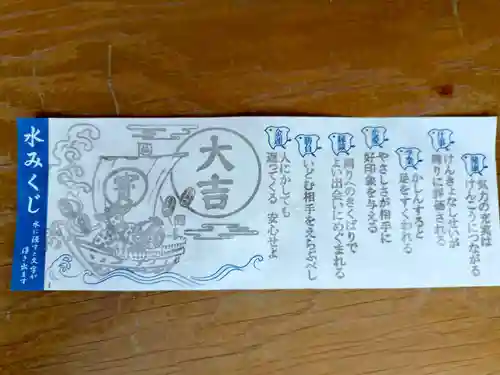 水みくじ
水に浸すと文字が
浮き出ます
大吉
健康
気力の充実は
けんこうにつながる
仕事
けんきょなしせいが
周りに評価される
学業
かしんすると
足をすくわれる
恋愛
やさしさが相手に
好印象を与える
縁談
周りへのきくばりで
よい出会いにめぐまれる
勝負
いどむ相手をえらぶべし
金運
人にかしても
返ってくる 安心せよ